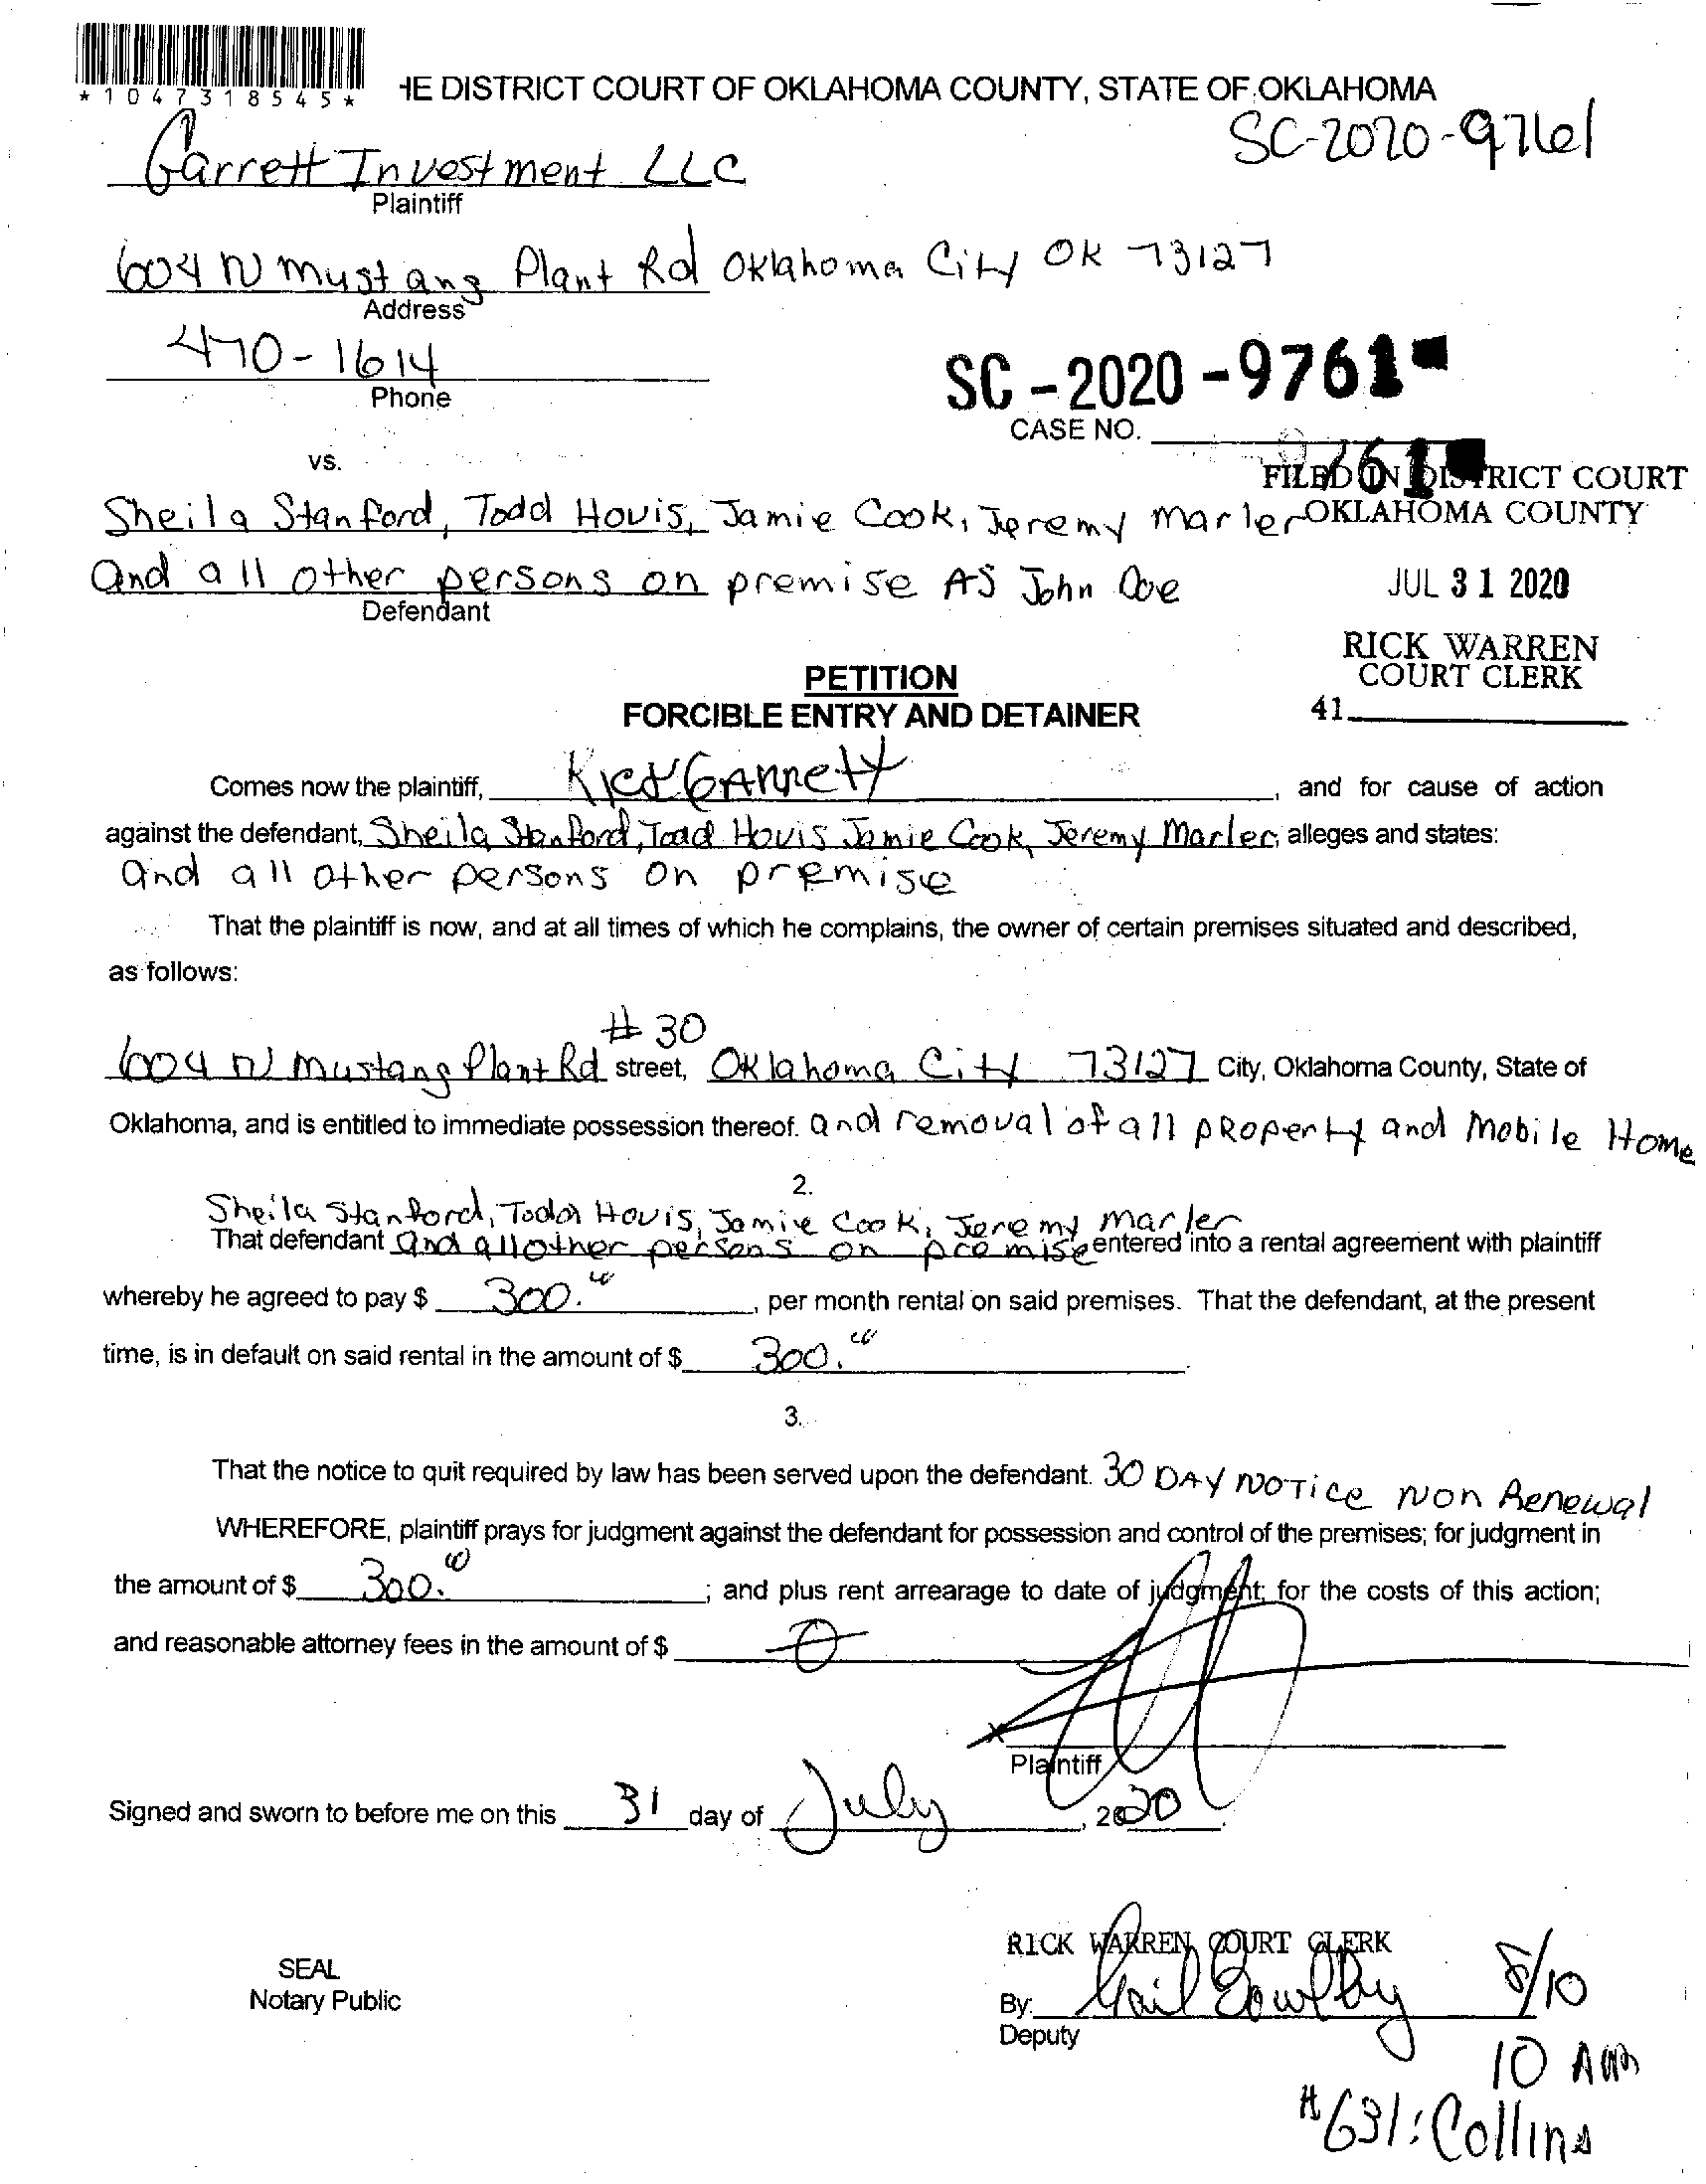 *1047318545*
HE DISTRICT COURT OF OKLAHOMA COUNTY, STATE OF OKLAHOMA
SC-2020-9761
Garrett Investment LLC
Plaintiff
604 N Mustang Plant Rd Oklahoma City OK 73127
Address
470-1614
Phone
SC-2020-9761
CASE NO.
vs.
FILED IN DISTRICT COURT
Sheila Stanford, Todd Hovis, Jamie Cook, Jeremy Marler
OKLAHOMA COUNTY
and all other persons on premise AS John Doe
Defendant
JUL 31 2020
RICK WARREN
COURT CLERK
41
PETITION
FORCIBLE ENTRY AND DETAINER
Comes now the plaintiff, , and for cause of action
against the defendant, Sheila Stanford, Todd Hovis Jamie Cook, Jeremy Marler, alleges and states:
and all other persons on premise
That the plaintiff is now, and at all times of which he complains, the owner of certain premises situated and described,
as follows:
# 30
604 N Mustang Plant Rd street, Oklahoma City 73127 City, Oklahoma County, State of
Oklahoma, and is entitled to immediate possession thereof. and removal of all property and Mobile Home
2.
Sheila Stanford, Todd Hovis, Jamie Cook, Jeremy Marler
That defendant and all other persons on premise entered into a rental agreement with plaintiff
whereby he agreed to pay $ 300.00, per month rental on said premises. That the defendant, at the present
time, is in default on said rental in the amount of $ 300.00.
3.
That the notice to quit required by law has been served upon the defendant. 30 DAY NOTice Non Renewal
WHEREFORE, plaintiff prays for judgment against the defendant for possession and control of the premises; for judgment in
the amount of $ 300.00; and plus rent arrearage to date of judgment; for the costs of this action;
and reasonable attorney fees in the amount of $ 0
x
Plaintiff
Signed and sworn to before me on this 31 day of July, 2020.
RICK WARREN, COURT CLERK
SEAL
Notary Public
By: Gail
Deputy
8/10
10 AM
#631: Collins